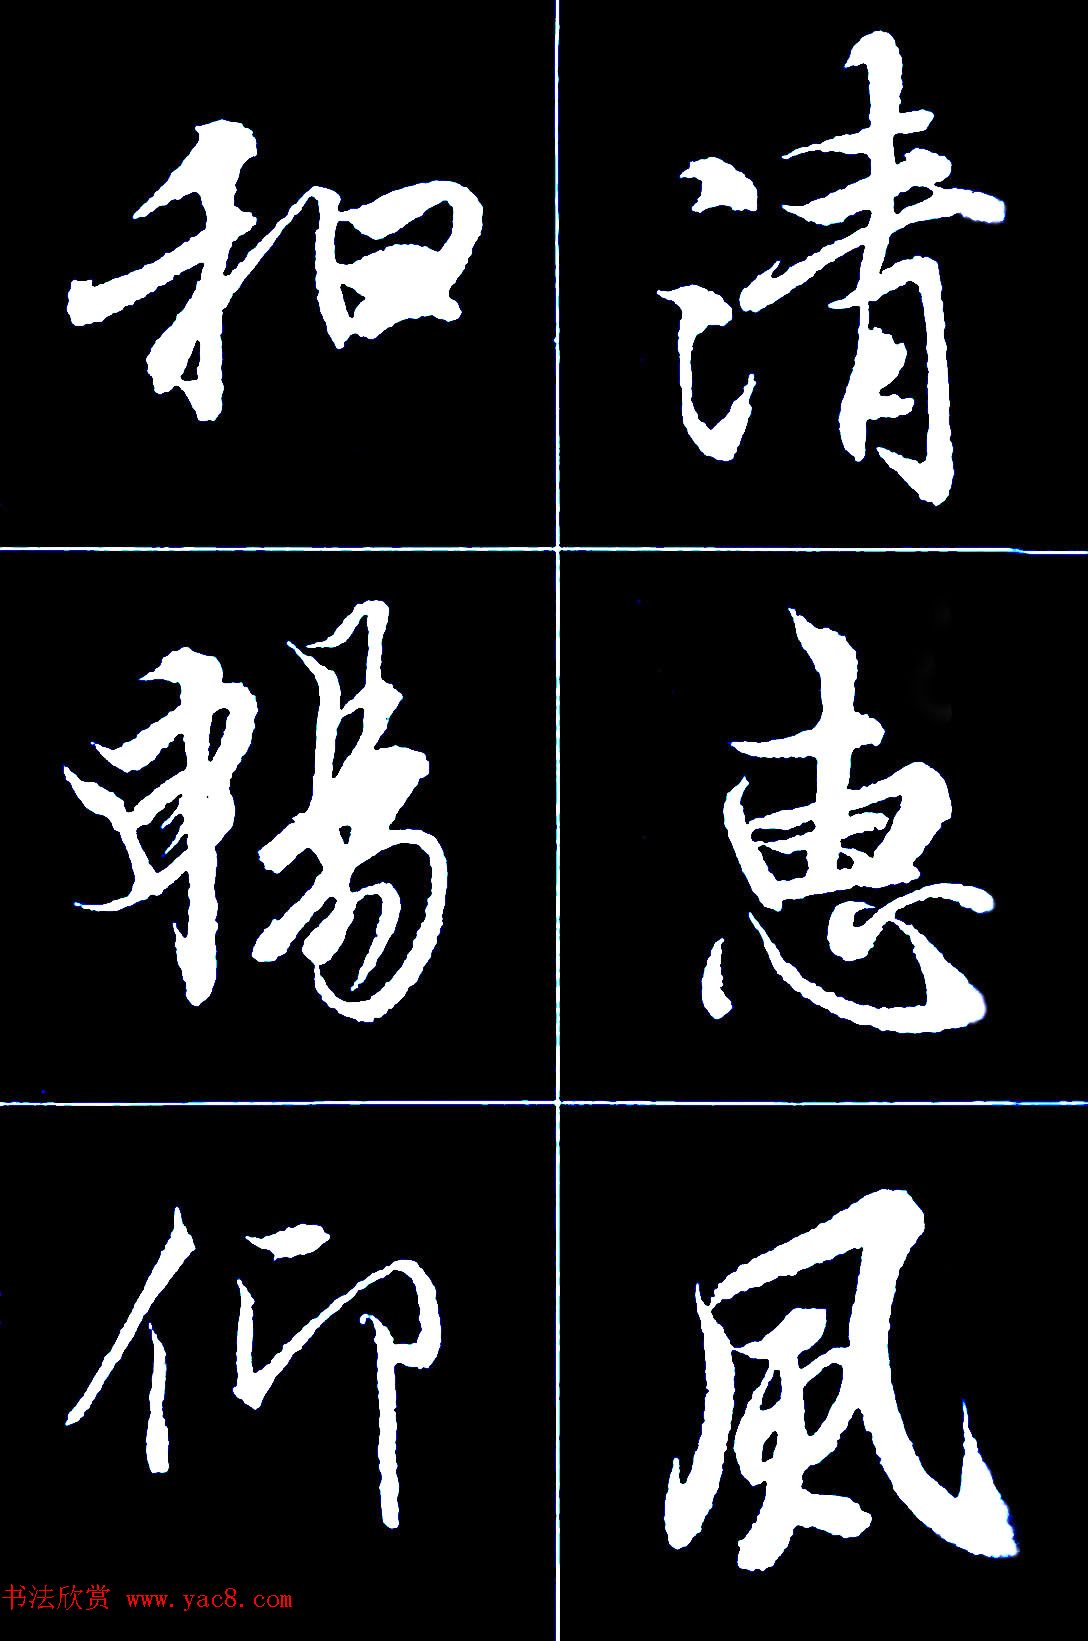 清惠風
和暢仰
书法欣赏 www.yac8.com